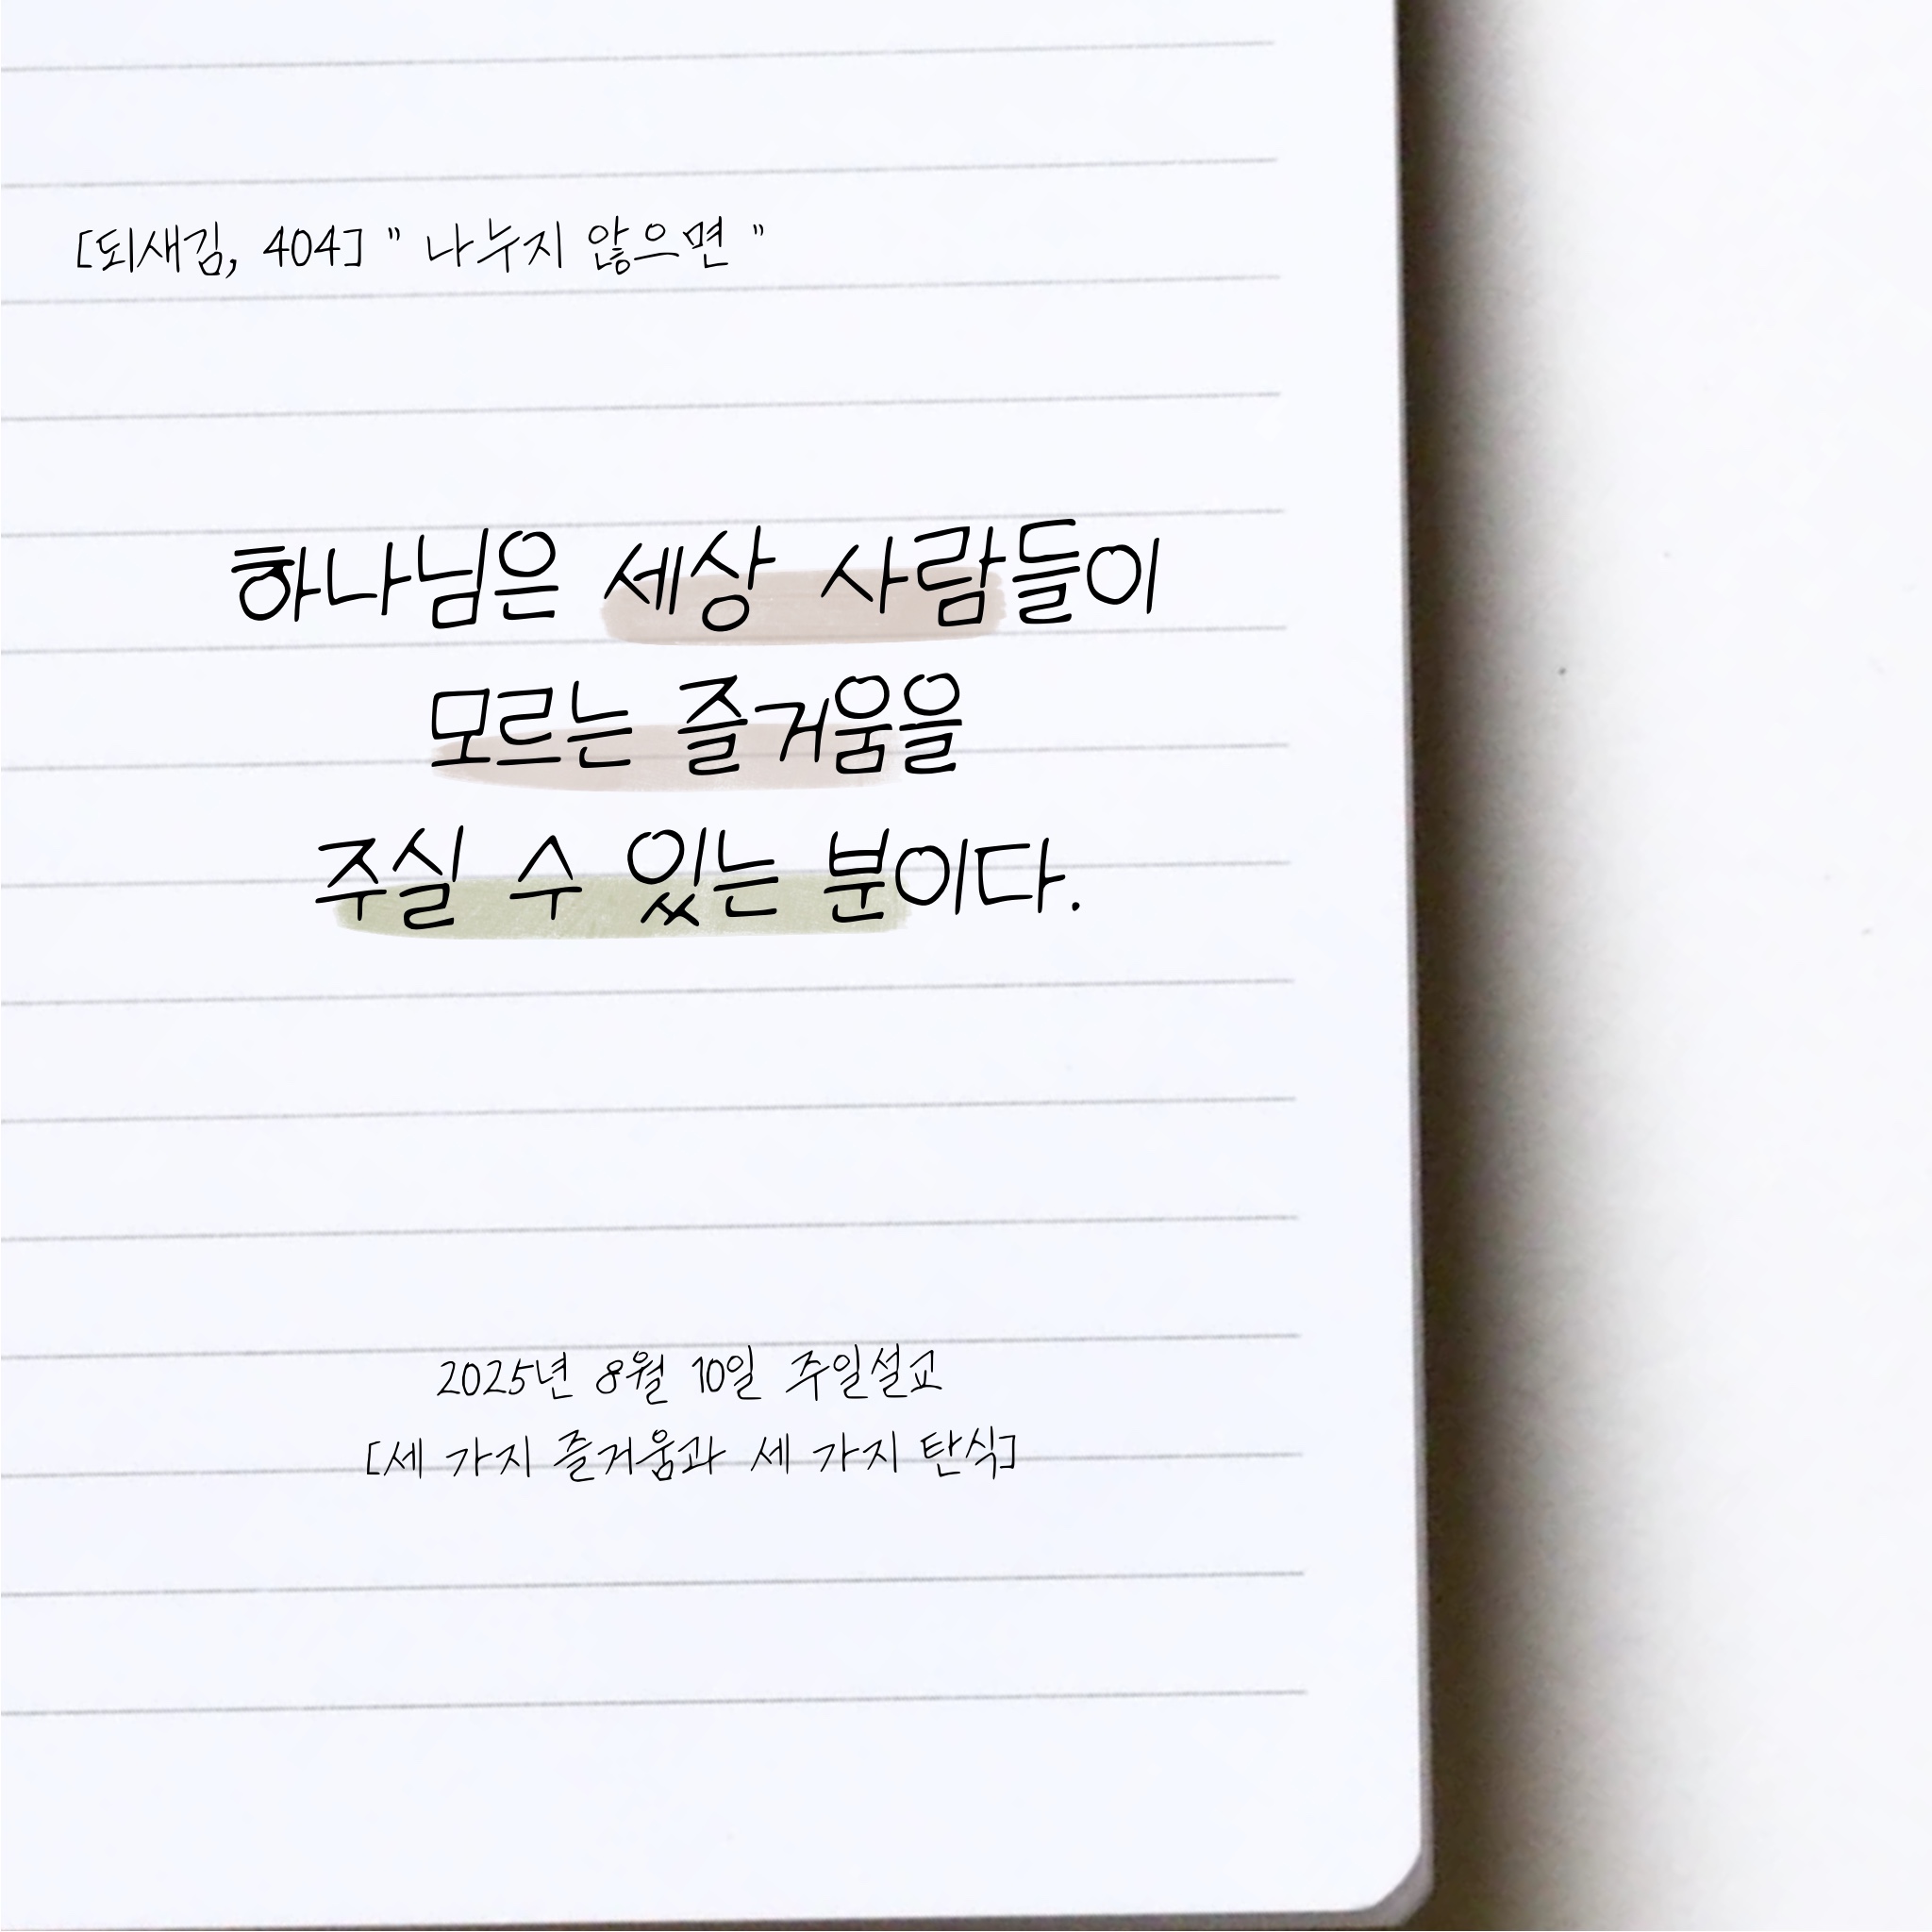 [되새김, 404] " 나누지 않으면 "
하나님은 세상 사람들이
모르는 즐거움을
주실 수 있는 분이다.
2025년 8월 10일 주일설교
[세 가지 즐거움과 세 가지 탄식]